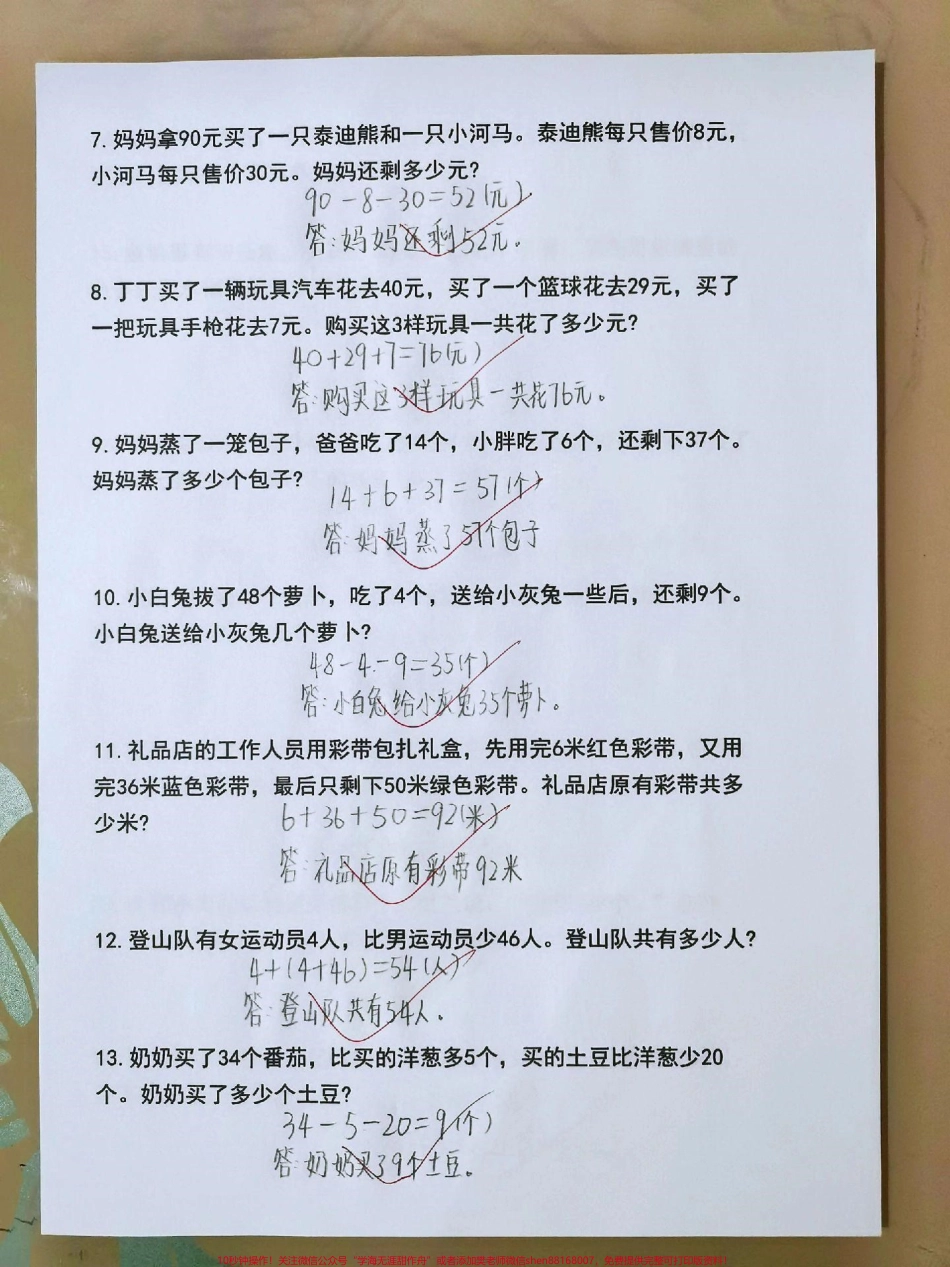 7. 妈妈拿90元买了一只泰迪熊和一只小河马。泰迪熊每只售价8元，
小河马每只售价30元。妈妈还剩多少元?
90-8-30=52(元)
答:妈妈还剩52元。
8. 丁丁买了一辆玩具汽车花去40元，买了一个篮球花去29元，买了
一把玩具手枪花去7元。购买这3样玩具一共花了多少元?
40+29+7=76(元)
答:购买这3样玩具一共花76元。
9. 妈妈蒸了一笼包子，爸爸吃了14个，小胖吃了6个，还剩下37个。
妈妈蒸了多少个包子?
14+6+37=57(个)
答:妈妈蒸了57个包子
10. 小白兔拔了48个萝卜，吃了4个，送给小灰兔一些后，还剩9个。
小白兔送给小灰兔几个萝卜?
48-4-9=35(个)
答:小白兔给小灰兔35个萝卜。
11. 礼品店的工作人员用彩带包扎礼盒，先用完6米红色彩带，又用
完36米蓝色彩带，最后只剩下50米绿色彩带。礼品店原有彩带共多
少米?
6+36+50=92(米)
答:礼品店原有彩带92米
12. 登山队有女运动员4人，比男运动员少46人。登山队共有多少人?
4+(4+46)=54(人)
答:登山队共有54人。
13. 奶奶买了34个番茄，比买的洋葱多5个，买的土豆比洋葱少20
个。奶奶买了多少个土豆?
34-5-20=9(个)
答:奶奶买了9个土豆。
10秒钟操作！关注微信公众号"学海无涯甜作舟"或者添加樊老师微信shen88158007，免费提供完整可打印版资料！